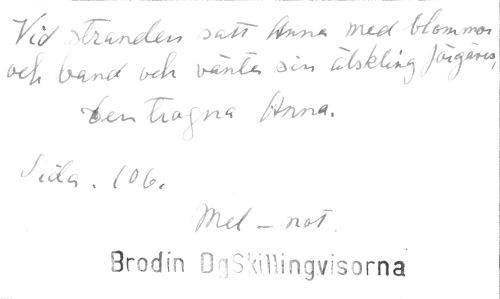 Vid stranden satt Anna med blommor
och band och väntar sin älskling förgäves,
Den trogna Anna.
Sida. 106.
Mel – not.
Brodin DgSkillingvisorna